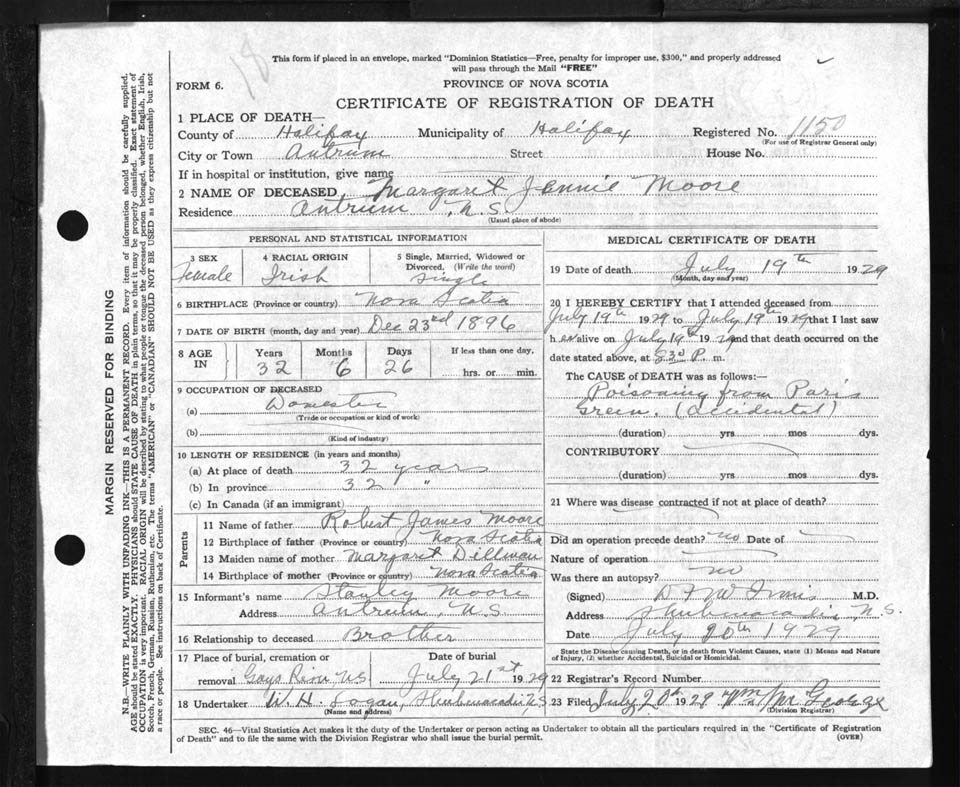 18
This form if placed in an envelope, marked "Dominion Statistics—Free, penalty for improper use, $300," and properly addressed
will pass through the Mail "FREE"
FORM 6.
PROVINCE OF NOVA SCOTIA
CERTIFICATE OF REGISTRATION OF DEATH
1 PLACE OF DEATH—
County of Halifax Municipality of Halifax Registered No. 1150
(For use of Registrar General only)
City or Town Antrum Street House No.
If in hospital or institution, give name
2 NAME OF DECEASED Margaret Jennie Moore
Residence Antrum N.S.
(Usual place of abode)
PERSONAL AND STATISTICAL INFORMATION
3 SEX 4 RACIAL ORIGIN 5 Single, Married, Widowed or
Divorced. (Write the word)
Female Irish Single
6 BIRTHPLACE (Province or country) Nova Scotia
7 DATE OF BIRTH (month, day and year) Dec 23rd 1896
8 AGE IN Years Months Days If less than one day,
32 6 26 hrs. or min.
9 OCCUPATION OF DECEASED
(a) Domestic
(Trade or occupation or kind of work)
(b)
(Kind of industry)
10 LENGTH OF RESIDENCE (in years and months)
(a) At place of death 32 years
(b) In province 32 "
(c) In Canada (if an immigrant)
Parents
11 Name of father Robert James Moore
12 Birthplace of father (Province or country) Nova Scotia
13 Maiden name of mother Margaret Dillman
14 Birthplace of mother (Province or country) Nova Scotia
15 Informant's name Stanley Moore
Address Antrum, N.S.
16 Relationship to deceased Brother
17 Place of burial, cremation or Date of burial
removal Gays River NS July 21st 1929
18 Undertaker W. H. Logan, Shubenacadie N.S
(Name and address)
MEDICAL CERTIFICATE OF DEATH
19 Date of death July 19th 1929
(Month, day and year)
20 I HEREBY CERTIFY that I attended deceased from
July 19th 1929 to July 19th 1929 that I last saw
her alive on July 19th 1929 and that death occurred on the
date stated above, at P. m.
The CAUSE of DEATH was as follows:—
Poisoning from Paris
Green. (Accidental)
(duration) yrs mos dys.
CONTRIBUTORY
(duration) yrs mos dys.
21 Where was disease contracted if not at place of death?
Did an operation precede death? no Date of
Nature of operation
Was there an autopsy? no
(Signed) M.D.
Address Shubenacadie, N.S.
Date July 20th 1929
State the Disease causing Death, or in death from Violent Causes, state (1) Means and Nature
of Injury, (2) whether Accidental, Suicidal or Homicidal.
22 Registrar's Record Number
23 Filed July 20th 1929 Wm McGeorge
(Division Registrar)
SEC. 46—Vital Statistics Act makes it the duty of the Undertaker or person acting as Undertaker to obtain all the particulars required in the "Certificate of Registration
of Death" and to file the same with the Division Registrar who shall issue the burial permit.
(OVER)
MARGIN RESERVED FOR BINDING
N.B.—WRITE PLAINLY WITH UNFADING INK—THIS IS A PERMANENT RECORD. Every item of information should be carefully supplied.
AGE should be stated EXACTLY. PHYSICIANS should STATE CAUSE OF DEATH in plain terms, so that it may be properly classified. Exact statement of
OCCUPATION is very important. RACIAL ORIGIN will be described by stating to what people or tongue the deceased person belonged, whether English, Irish,
Scotch, French, German, Russian, Ruthenian, etc. The terms "AMERICAN" or "CANADIAN" SHOULD NOT BE USED as they express citizenship but not
a race or people. See instructions on back of Certificate.